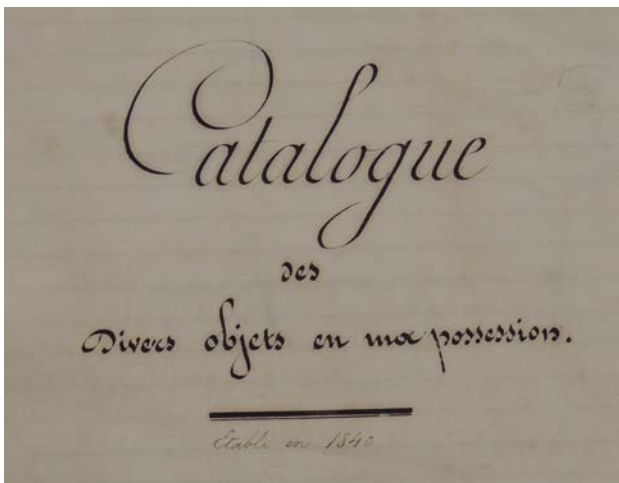 Catalogue
des
Divers objets en ma possession.
Etabli en 1840